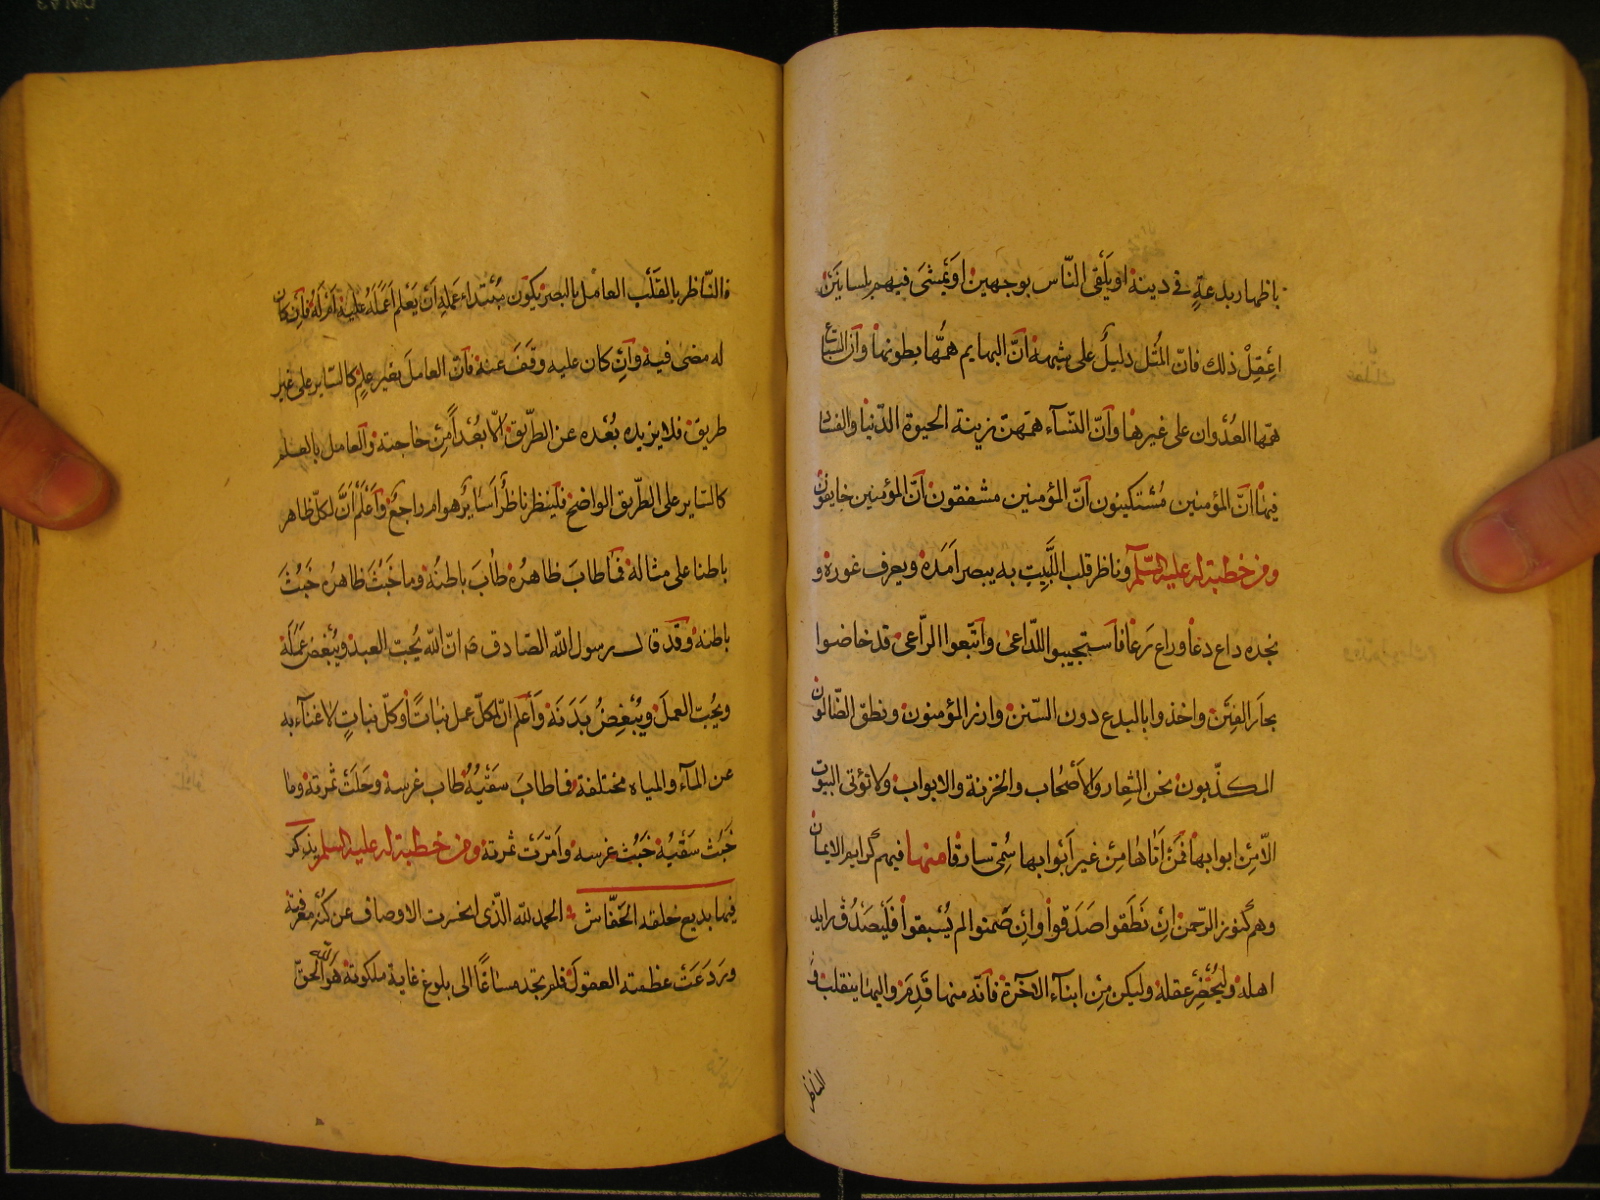 باظهار بدعةٍ في دينه او يَلْقى النّاس بوجهين او يَمْشىَ فيهم بلسانَيْن
اِعْقِلْ ذلك فانّ المُثل دليلٌ على شبهه انّ البهايم همُّها بطونها وانّ السّباع
همّها العُدْوان على غيرها وانّ النسآء همّهنّ زينة الحيوة الدّنيا والفساد
فيها انّ المؤمنين مُسْتكينون انّ المؤمنين مشفقون انّ المؤمنين خايفون
ومن خطبة له عليه السّلم وناظر قلب اللَّبِيبِ به يبصر اَمَدَه ويعرف غوره و
نجده داع دعا وراع رَعا فاستجيبوا للدّاعى واتّبعوا الرّاعى قد خاضوا
بحارَ الفِتَن واخذوا بالبدع دون السّنن وارز المؤمنون ونطق الضّالون
المكذّبون نحن الشِعار والاَصْحاب والخزنة والابواب ولا تؤتى البيوت
الّا مِن ابوابها فمَن اَتاها مِن غير اَبْوابها سُمّى سارقا منها فيهم كرايم الايمان
وهم كنوز الرّحمن اِن نَطَقوا صَدَقوا وان صَمتوا لم يُسْبقوا فَلْيَصْدُق رايد
اهله وليُحْضِر عقله وليكن مِن ابناء الآخرة فانّه منها قَدِمَ واليها ينقلب
للناظر
النّاظر بالقَلْب العامل بالبصر يَكُون مُبْتداءُ عَمَلِهِ اَن يَعْلم اَعَمَلُهُ عليه اَمْ لَهُ فاِن كان
له مضى فيه واِن كان عليه وقَفَ عنه فانّ العاملَ بغير علمٍ كالسّاير على غير
طريق فلا يزيده بُعْده عن الطّريق الّا بُعْداً مِن حاجته والعامل بالعلم
كالسّاير على الطّريق الواضح فَلْينظر ناظرٌ اَسايرٌ هو ام راجعٌ واَعْلَمْ اَنَّ لكلّ ظاهر
باطنا على مثاله فما طابَ ظاهرُه طابَ باطنُه وما خَبُثَ ظاهرُه خَبُثَ
باطنه وقد قال رسول الله الصّادق ص انّ الله يُحِبّ العبد ويُبْغِض عَمَلَه
ويُحِبّ العملَ ويُبْغِضُ بَدَنَه وَاَعْلَم انّ لكلّ عمل نباتًا وكلّ نباتٍ لا غنآء به
عن المآء والمياه مختلفة فما طابَ سَقْيُهُ طاب غرسه وحَلَتْ ثمرته وما
خَبُثَ سَقْيُهُ خَبُثَ غرسه واَمَرّت ثمرته ومن خطبة له عليه السلم يذكر
فيها بديع خلقة الخفّاش الحمد لله الّذى انحسرت الاوصاف عن كُنْهِ معرفته
ورَدَعَتْ عظمته العقولَ فلم تجد مساغًا الى بلوغ غاية ملكوته هُوَ الله الحقّ